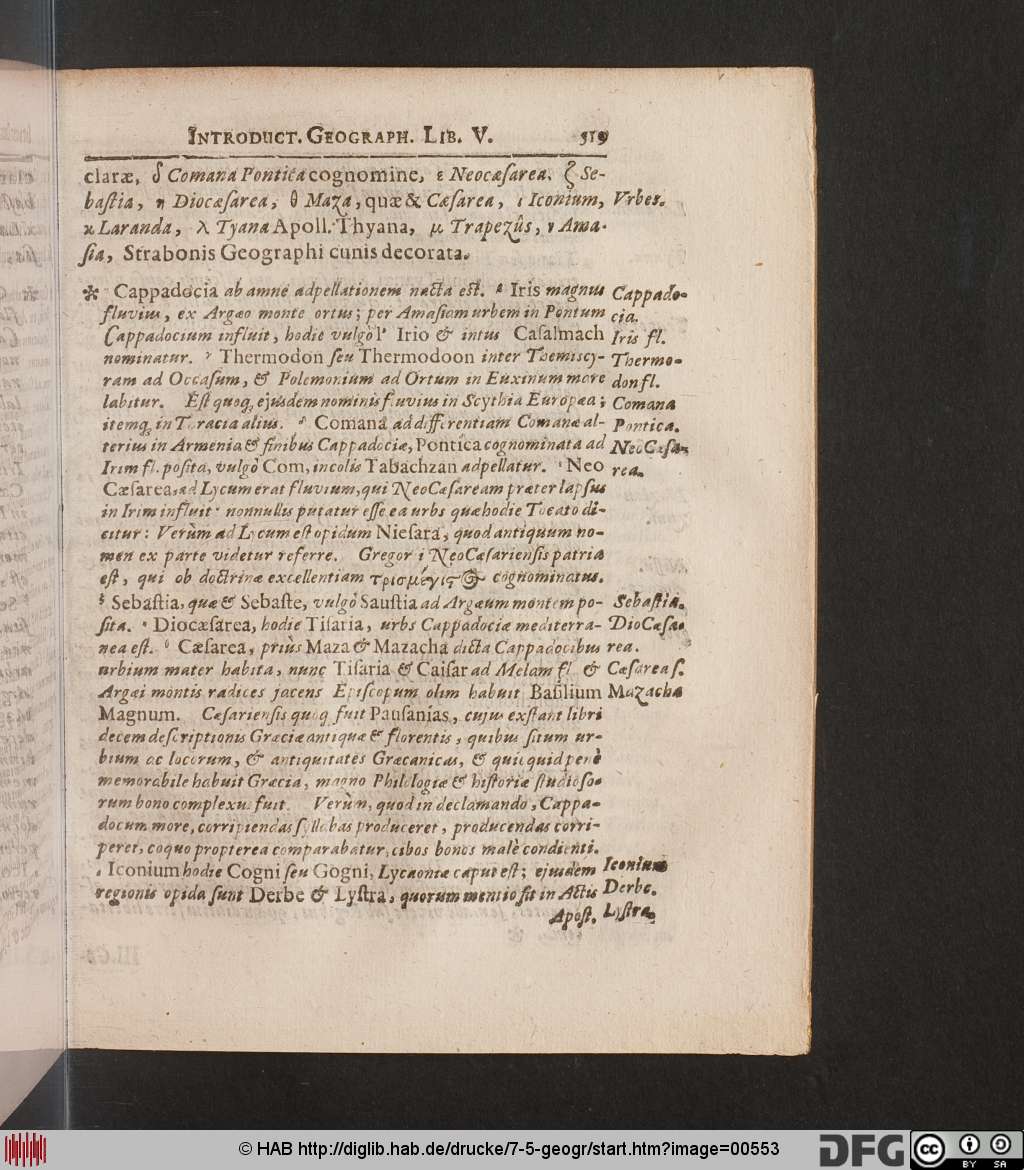 INTRODUCT. GEOGRAPH. LIB. V. 519
claræ, δ Comana Pontica cognomine, ε Neocæsarea, ζ Se-
bastia, η Diocæsarea, θ Maza, quæ & Cæsarea, ι Iconium,
Vrbes.
κ Laranda, λ Tyana Apoll. Thyana, μ Trapezûs, ν Ama-
sia, Strabonis Geographi cunis decorata.
* Cappadocia ab amne adpellationem nacta est. Iris magnus
Cappado-
fluvius, ex Argæo monte ortus; per Amasiam urbem in Pontum
cia.
Cappadocium influit, hodie vulgò l' Irio & intus Casalmach
Iris fl.
nominatur. γ Thermodon seu Thermodoon inter Themiscy-
Thermo-
ram ad Occasum, & Polemonium ad Ortum in Euxinum mare
don fl.
labitur. Est quoq; ejusdem nominis fluvius in Scythia Europæa;
Comana
itemq; in Thracia alius. δ Comana ad differentiam Comanæ al-
Pontica.
terius in Armenia & finibus Cappadociæ, Pontica cognominata ad
NeoCæsa-
Irim fl. posita, vulgò Com, incolis Tabachzan adpellatur. ε Neo
rea.
Cæsarea, ad Lycum erat fluvium, qui NeoCæsaream præter lapsus
in Irim influit: nonnullis putatur esse ea urbs quæ hodie Tocato di-
citur: Verùm ad Lycum est opidum Niesara, quod antiquum no-
men ex parte videtur referre. Gregorii NeoCæsariensis patria
est, qui ob doctrinæ excellentiam τρισμέγιστ@ cognominatus.
ζ Sebastia, quæ & Sebaste, vulgò Saustia ad Argæum montem po-
Sebastia.
sita. η Diocæsarea, hodie Tisaria, urbs Cappadociæ mediterra-
DioCæsa-
nea est. θ Cæsarea, priùs Maza & Mazacha dicta Cappadocibus
rea.
urbium mater habita, nunc Tisaria & Caisar ad Melam fl. &
Cæsarea s.
Argæi montis radices jacens Episcopum olim habuit Basilium
Mazacha
Magnum. Cæsariensis quoq; fuit Pausanias, cujus exstant libri
decem descriptionis Græciæ antiquæ & florentis, quibus situm ur-
bium ac locorum, & antiquitates Græcanicas, & quicquid penè
memorabile habuit Græcia, magno Philologiæ & historiæ studioso-
rum bono complexus fuit. Verùm, quod in declamando, Cappa-
docum more, corripiendas syllabas produceret, producendas corri-
peret, coquo propterea comparabatur, cibos bonos malè condienti.
ι Iconium hodie Cogni seu Gogni, Lycaoniæ caput est; ejusdem
Iconium
regionis opida sunt Derbe & Lystra, quorum mentio fit in Actis
Derbe.
Apost.
Lystra.
© HAB http://diglib.hab.de/drucke/7-5-geogr/start.htm?image=00553
DFG
cc BY SA